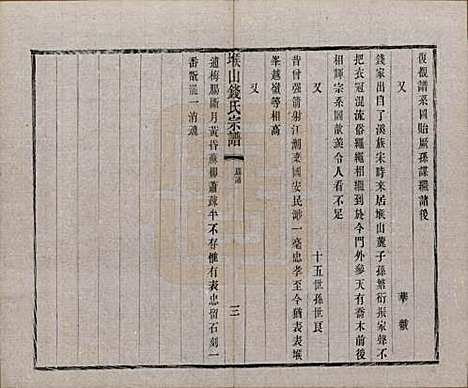 復觀譜系圖貽厥孫謀繼諸後
又　華徽
錢家出自了溪族宋時來居堠山麓子孫繁衍振家聲不
把衣冠混流俗繩繩相繼到於今門外參天有喬木前後
相輝宗系圖歆羨令人看不足
又　十五世孫世良
昔曾强箭射江潮來國安民澤一毫忠孝至今猶表表堠
峯越嶺等相高
又
適梅腸斷月黃昏蘇柳蕭疎半不存惟有表忠留石刻一
番翫 一消魂
堠山錢氏宗譜
三